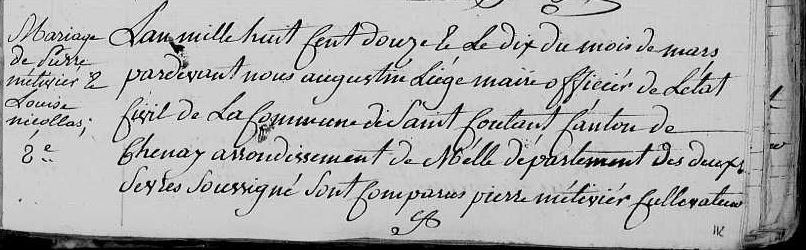 Mariage
de Pierre
métivier &
Louise
nicollas;
2e
L'an mille huit Cent douze & Le dix du mois de mars
pardevant nous augustin Liége maire officier de Létat
Civil de La Commune de Saint Coutant Canton de
Chenay arrondissement de Melle département des deux
Sevres Soussigné Sont Comparus pierre métivier Cultivateur